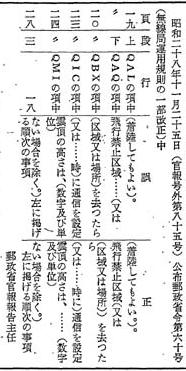 昭和二十八年十一月二十五日(官報号外第八十五号)公布郵政省令第六十号
(無線局運用規則の一部改正)中
頁 段 行 誤 正
一九 上 QALの項中 (着陸してもよい。 (着陸してもよい。)。
〃 下 QAQの項中 飛行禁止区域……(又は 飛行禁止区域(……又は
二〇 〃 QBXの項中 (区域又は場所)を去つたら (区域又は場所))を去つたら
二一 〃 QICの項中 (又は……時)に通信を設定 (又は……時に)通信を設定
二四 〃 QMIの項中 雲頂の高さは、(数字及び単位) 雲頂の高さは、……(数字及び単位)
二八 三 一八 ない場合を除く。)左に掲げる順次の事項 ない場合を除く。)左に掲げる順次の事項
郵政省官報報告主任